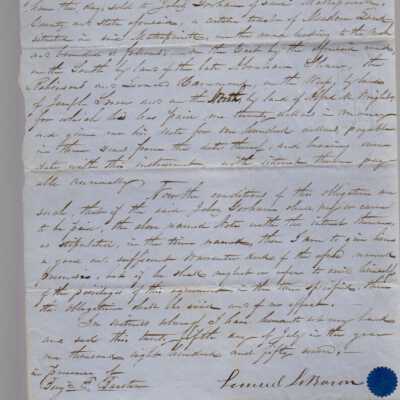 have this day sold to John Gorham of said Mattapoisett
County and State aforesaid, a certain tract of Meadow Land
situated in said Mattapoisett, on the road leading to the
and bounded as follows, on the East by the
on the South by land of the late Abraham
and on the West by land
of Joseph and on the North by land of Alfred M. Wright
for which he has paid me twenty dollars in money
and given me his Note for one hundred dollars payable
in three years from the date thereof, and bearing even
date with this instrument with interest thereon pay
able annually,
Now the conditions of this obligation are
such, that if the said John Gorham shall pay or cause
to be paid, the above named Note with the interest thereon
as stipulated, in the time named, then I am to give him
a good and sufficient Warrantee deed of the above named
premises, but if he shall neglect or refuse to avail himself
of the provisions of this agreement in the time specified then
this obligation shall be void and of no effect.
In witness whereof I have hereunto set my hand
and seal this twenty fifth day of July in the year
one thousand eight hundred and fifty seven,
in Presence of
Lemuel LeBaron